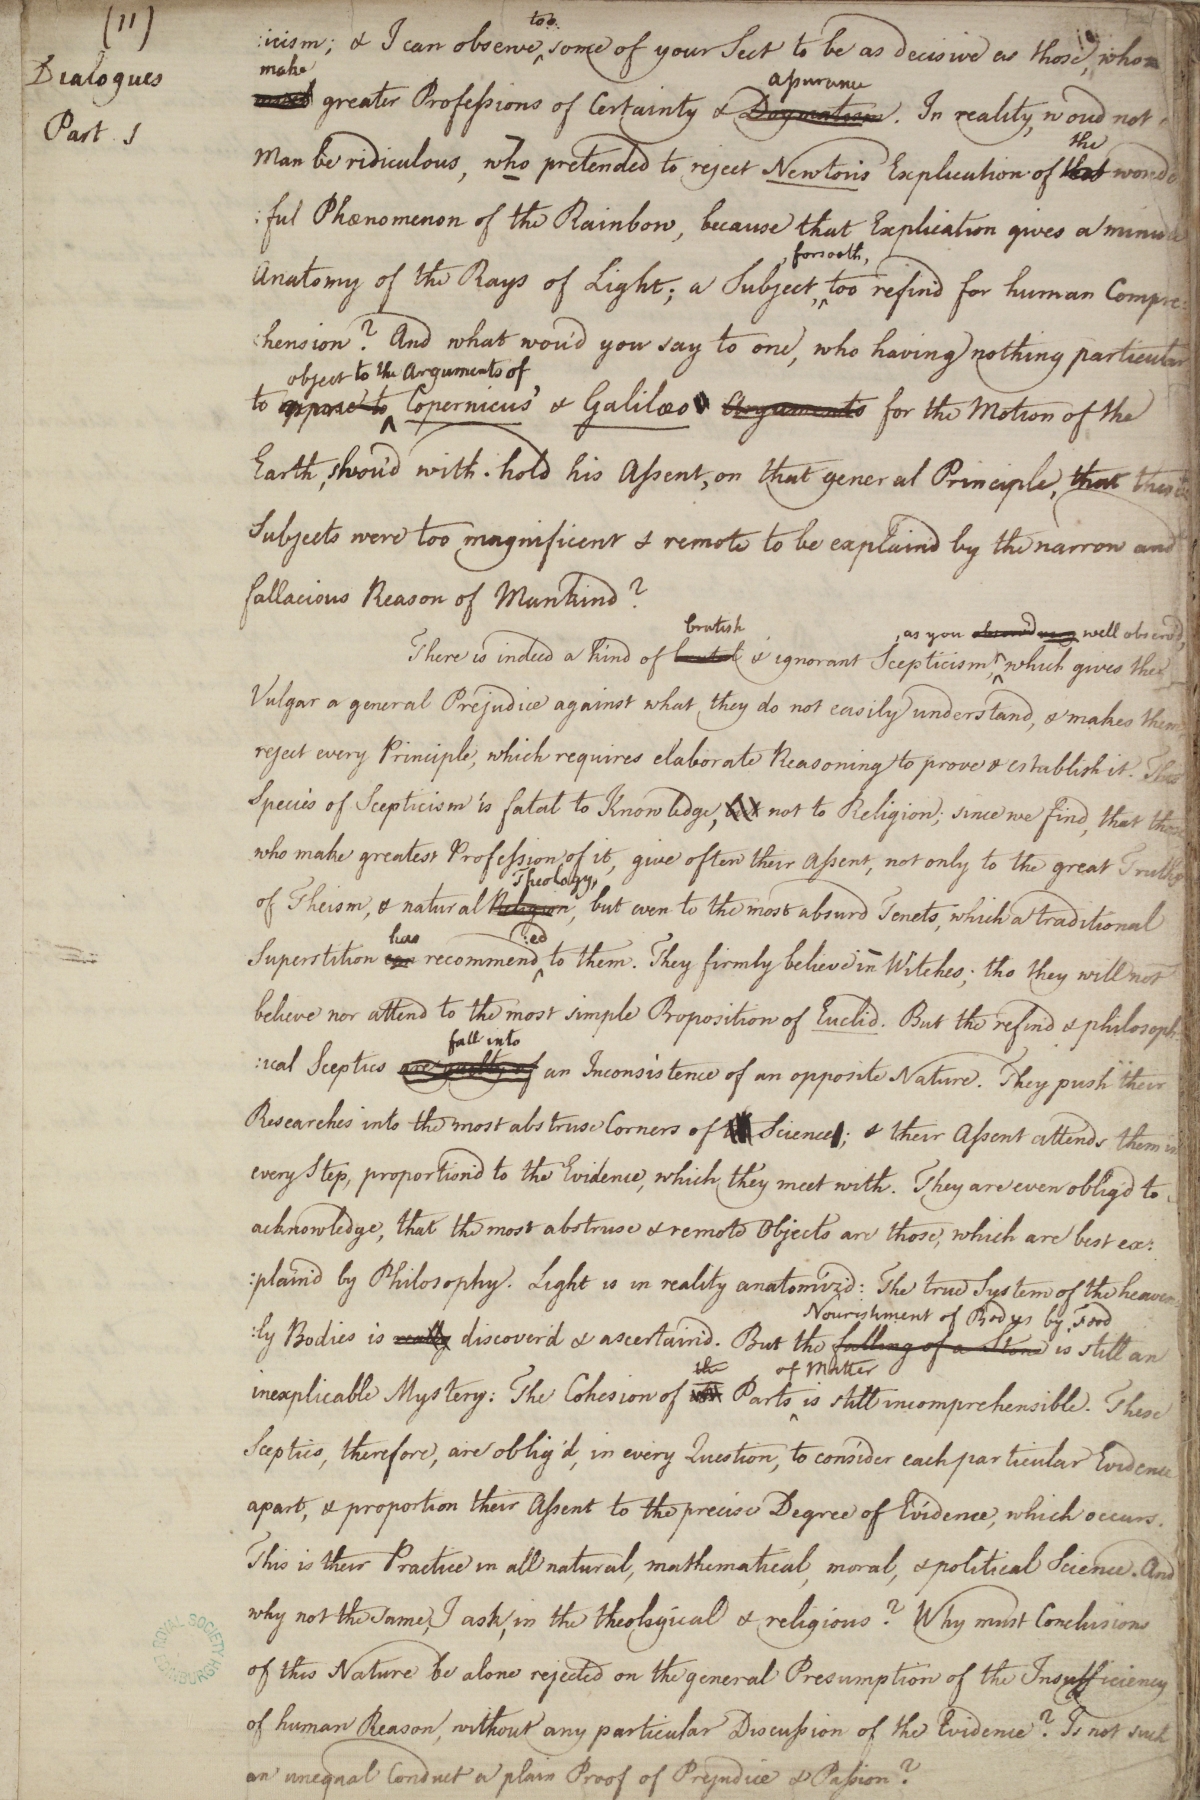 (11)
Dialogues
Part. 1
too
:icism; & I can observe, some of your Sect to be as decisive as those, who
make
greater Professions of Certainty & Dogmatism. In reality, woud not a
assurance
Man be ridiculous, who pretended to reject Newton's Explication of that wonder
the
:ful Phænomenon of the Rainbow, because that Explication gives a minute
Anatomy of the Rays of Light; a Subject, too refin'd for human Compre:
, forsooth,
:hension? And what wou'd you say to one, who having nothing particular
object to the Arguments of
to oppose to Copernicus' & Galilæo Arguments for the Motion of the
Earth, shou'd with-hold his Assent, on that general Principle, that these
Subjects were too magnificent & remote to be explain'd by the narrow and
fallacious Reason of Mankind?
brutish , as you well observ'd,
There is indeed a kind of brutal & ignorant Scepticism, which gives the
Vulgar a general Prejudice against what they do not easily understand, & makes them
reject every Principle, which requires elaborate Reasoning to prove & establish it. This
Species of Scepticism is fatal to Knowledge, but not to Religion; since we find, that those
who make greatest Profession of it, give often their Assent, not only to the great Truths
Theology,
of Theism, & natural Religion, but even to the most absurd Tenets, which a traditional
has :ed
Superstition can recommend to them. They firmly believe in Witches; tho they will not
believe nor attend to the most simple Proposition of Euclid. But the refin'd & philosoph:
fall into
:ical Sceptics are guilty of an Inconsistence of an opposite Nature. They push their
Researches into the most abstruse Corners of Science; & their Assent attends them in
every Step, proportion'd to the Evidence, which they meet with. They are even oblig'd to
acknowledge, that the most abstruse & remote Objects are those, which are best ex:
:plain'd by Philosophy. Light is in reality anatomiz'd: The true System of the heaven:
Nourishment of Bodys by Food
:ly Bodies is really discover'd & ascertain'd. But the falling of a Stone is still an
the of Matter
inexplicable Mystery: The Cohesion of Parts is still incomprehensible. These
Sceptics, therefore, are oblig'd, in every Question, to consider each particular Evidence
apart, & proportion their Assent to the precise Degree of Evidence, which occurs.
This is their Practice in all natural, mathematical, moral, & political Science. And
why not the same, I ask, in the theological & religious? Why must Conclusions
of this Nature be alone rejected on the general Presumption of the Insufficiency
of human Reason, without any particular Discussion of the Evidence? Is not such
an unequal Conduct a plain Proof of Prejudice & Passion?
ROYAL SOCIETY
EDINBURGH